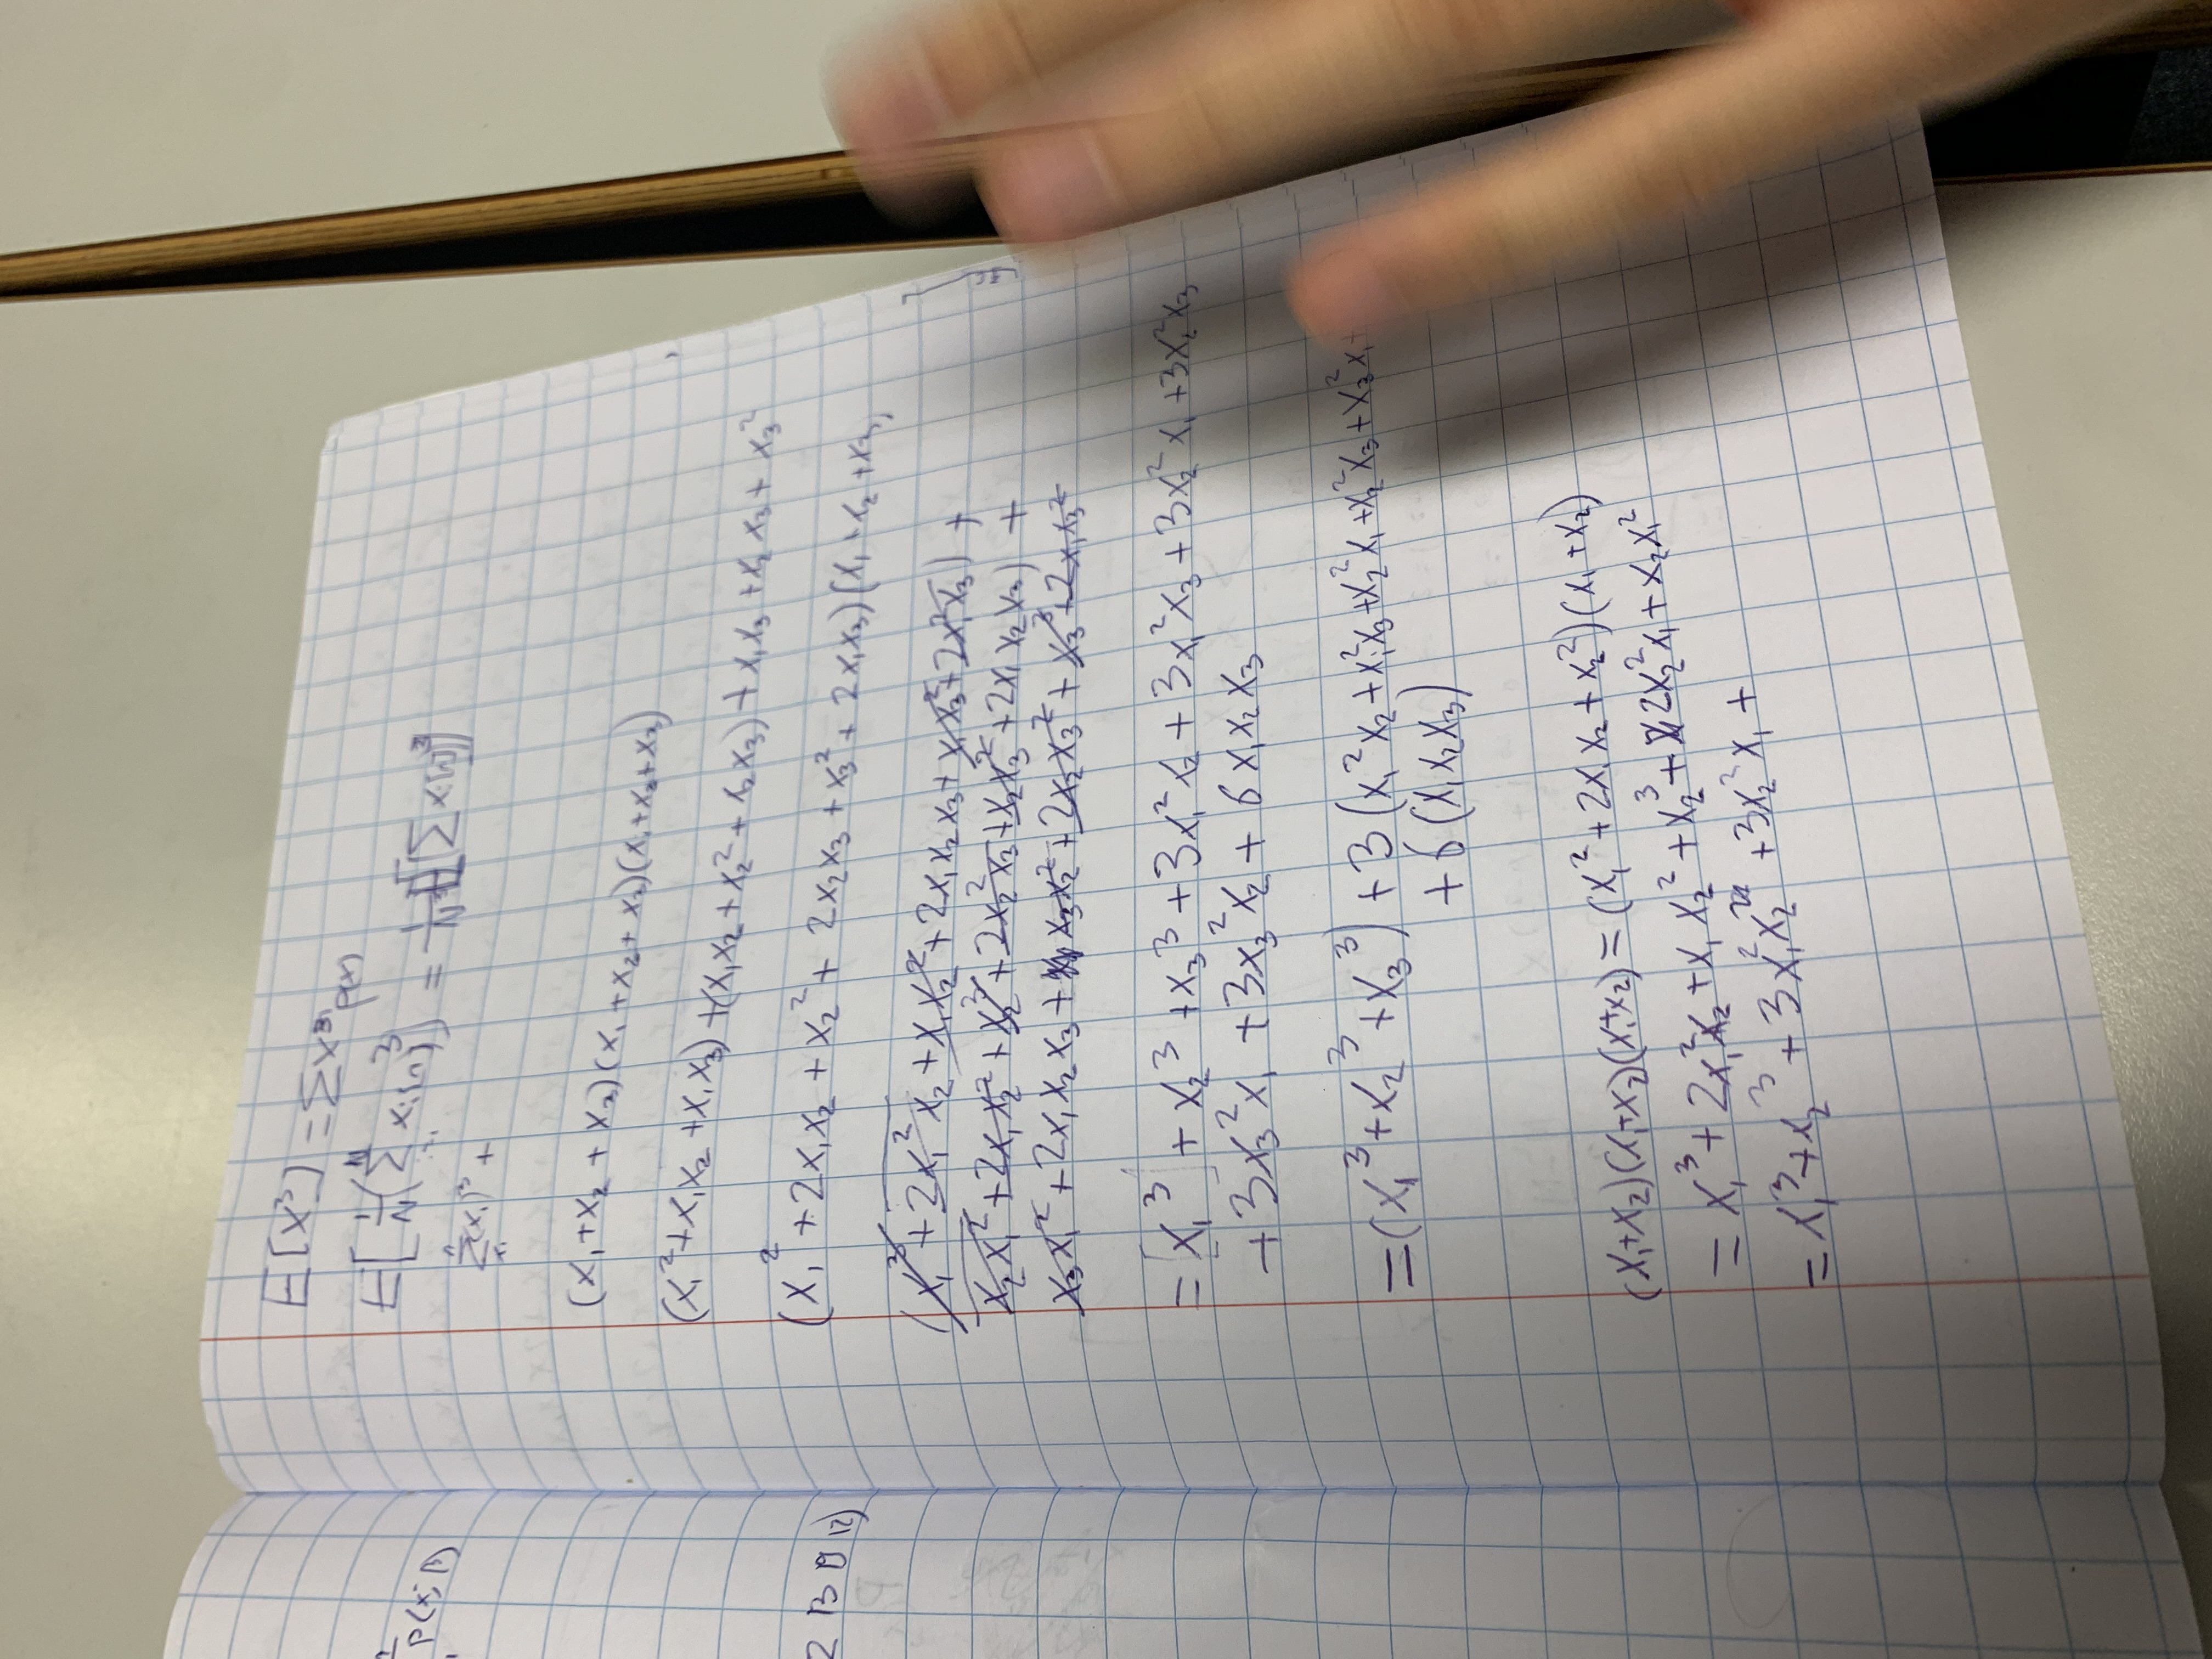 p(x; B)
2 B θ 12)
E[X³] = Σ x³ p(x)
E[1/N (Σ xᵢ[n])³] = 1/N³ E[(Σ xᵢ[n])³]
Σ(xᵢ)³ +
(x₁+x₂ + x₃)(x₁ +x₂+ x₃)(x₁+x₂+x₃)
(x₁²+x₁x₂ +x₁x₃) +(x₁x₂ + x₂² + x₂x₃) + x₁x₃ +x₂x₃ + x₃²
(x₁² + 2x₁x₂ + x₂² + 2x₂x₃ + x₃² + 2x₁x₃)(x₁ + x₂ +x₃)
(x₁³ + 2x₁²x₂ + x₁x₂² + 2x₁x₂x₃ + x₁x₃² + 2x₁²x₃) +
x₂x₁² + 2x₁x₂² + x₂³ + 2x₂²x₃ + x₂x₃² + 2x₁x₂x₃) +
x₃x₁² + 2x₁x₂x₃ + x₃x₂² + 2x₂x₃² + x₃³ + 2x₁x₃²
= x₁³ + x₂³ + x₃³ + 3x₁²x₂ + 3x₁²x₃ + 3x₂²x₁ + 3x₂²x₃
+ 3x₃²x₁ + 3x₃²x₂ + 6x₁x₂x₃
= (x₁³ + x₂³ + x₃³) + 3(x₁²x₂ + x₁²x₃ + x₂²x₁ + x₂²x₃ + x₃²x₁ +
+ 6(x₁x₂x₃)
(x₁+x₂)(x₁+x₂)(x₁+x₂) = (x₁² + 2x₁x₂ + x₂²)(x₁ + x₂)
= x₁³ + 2x₁²x₂ + x₁x₂² + x₂³ + 2x₂²x₁ + x₂x₁²
= x₁³ + x₂³ + 3x₁²x₂ + 3x₂²x₁ +